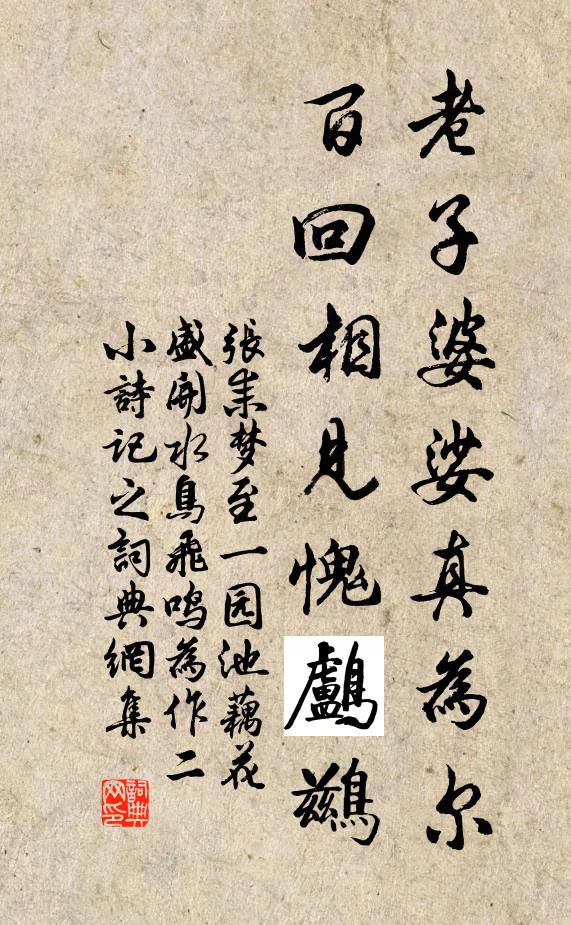 老子婆娑真為尔
百回相見愧鸕鷀
張耒梦至一园池藕花
盛開水鳥飛鳴為作二
小詩記之詞典網集
詞典
网印